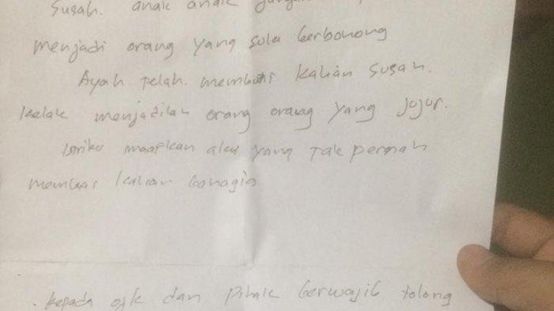 Susah. anak anak jangan
menjadi orang yang suka berbohong
Ayah telah membuat kalian susah.
kelak menjadilah orang orang yang jujur.
maafkan aku yang tak pernah
membuat kalian bahagia
. kepada ojk dan pihak berwajib tolong